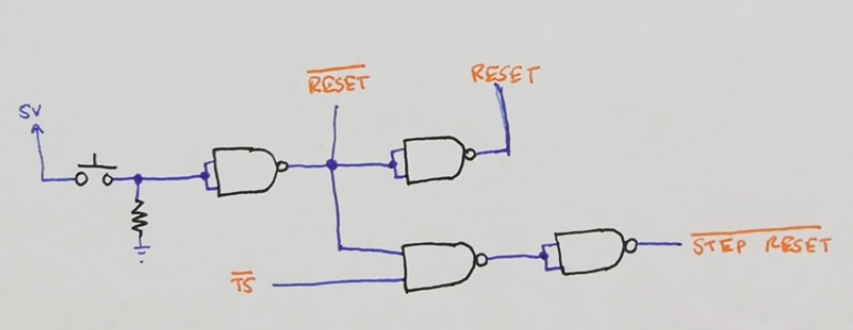 RESET
RESET
5V
TS
STEP RESET